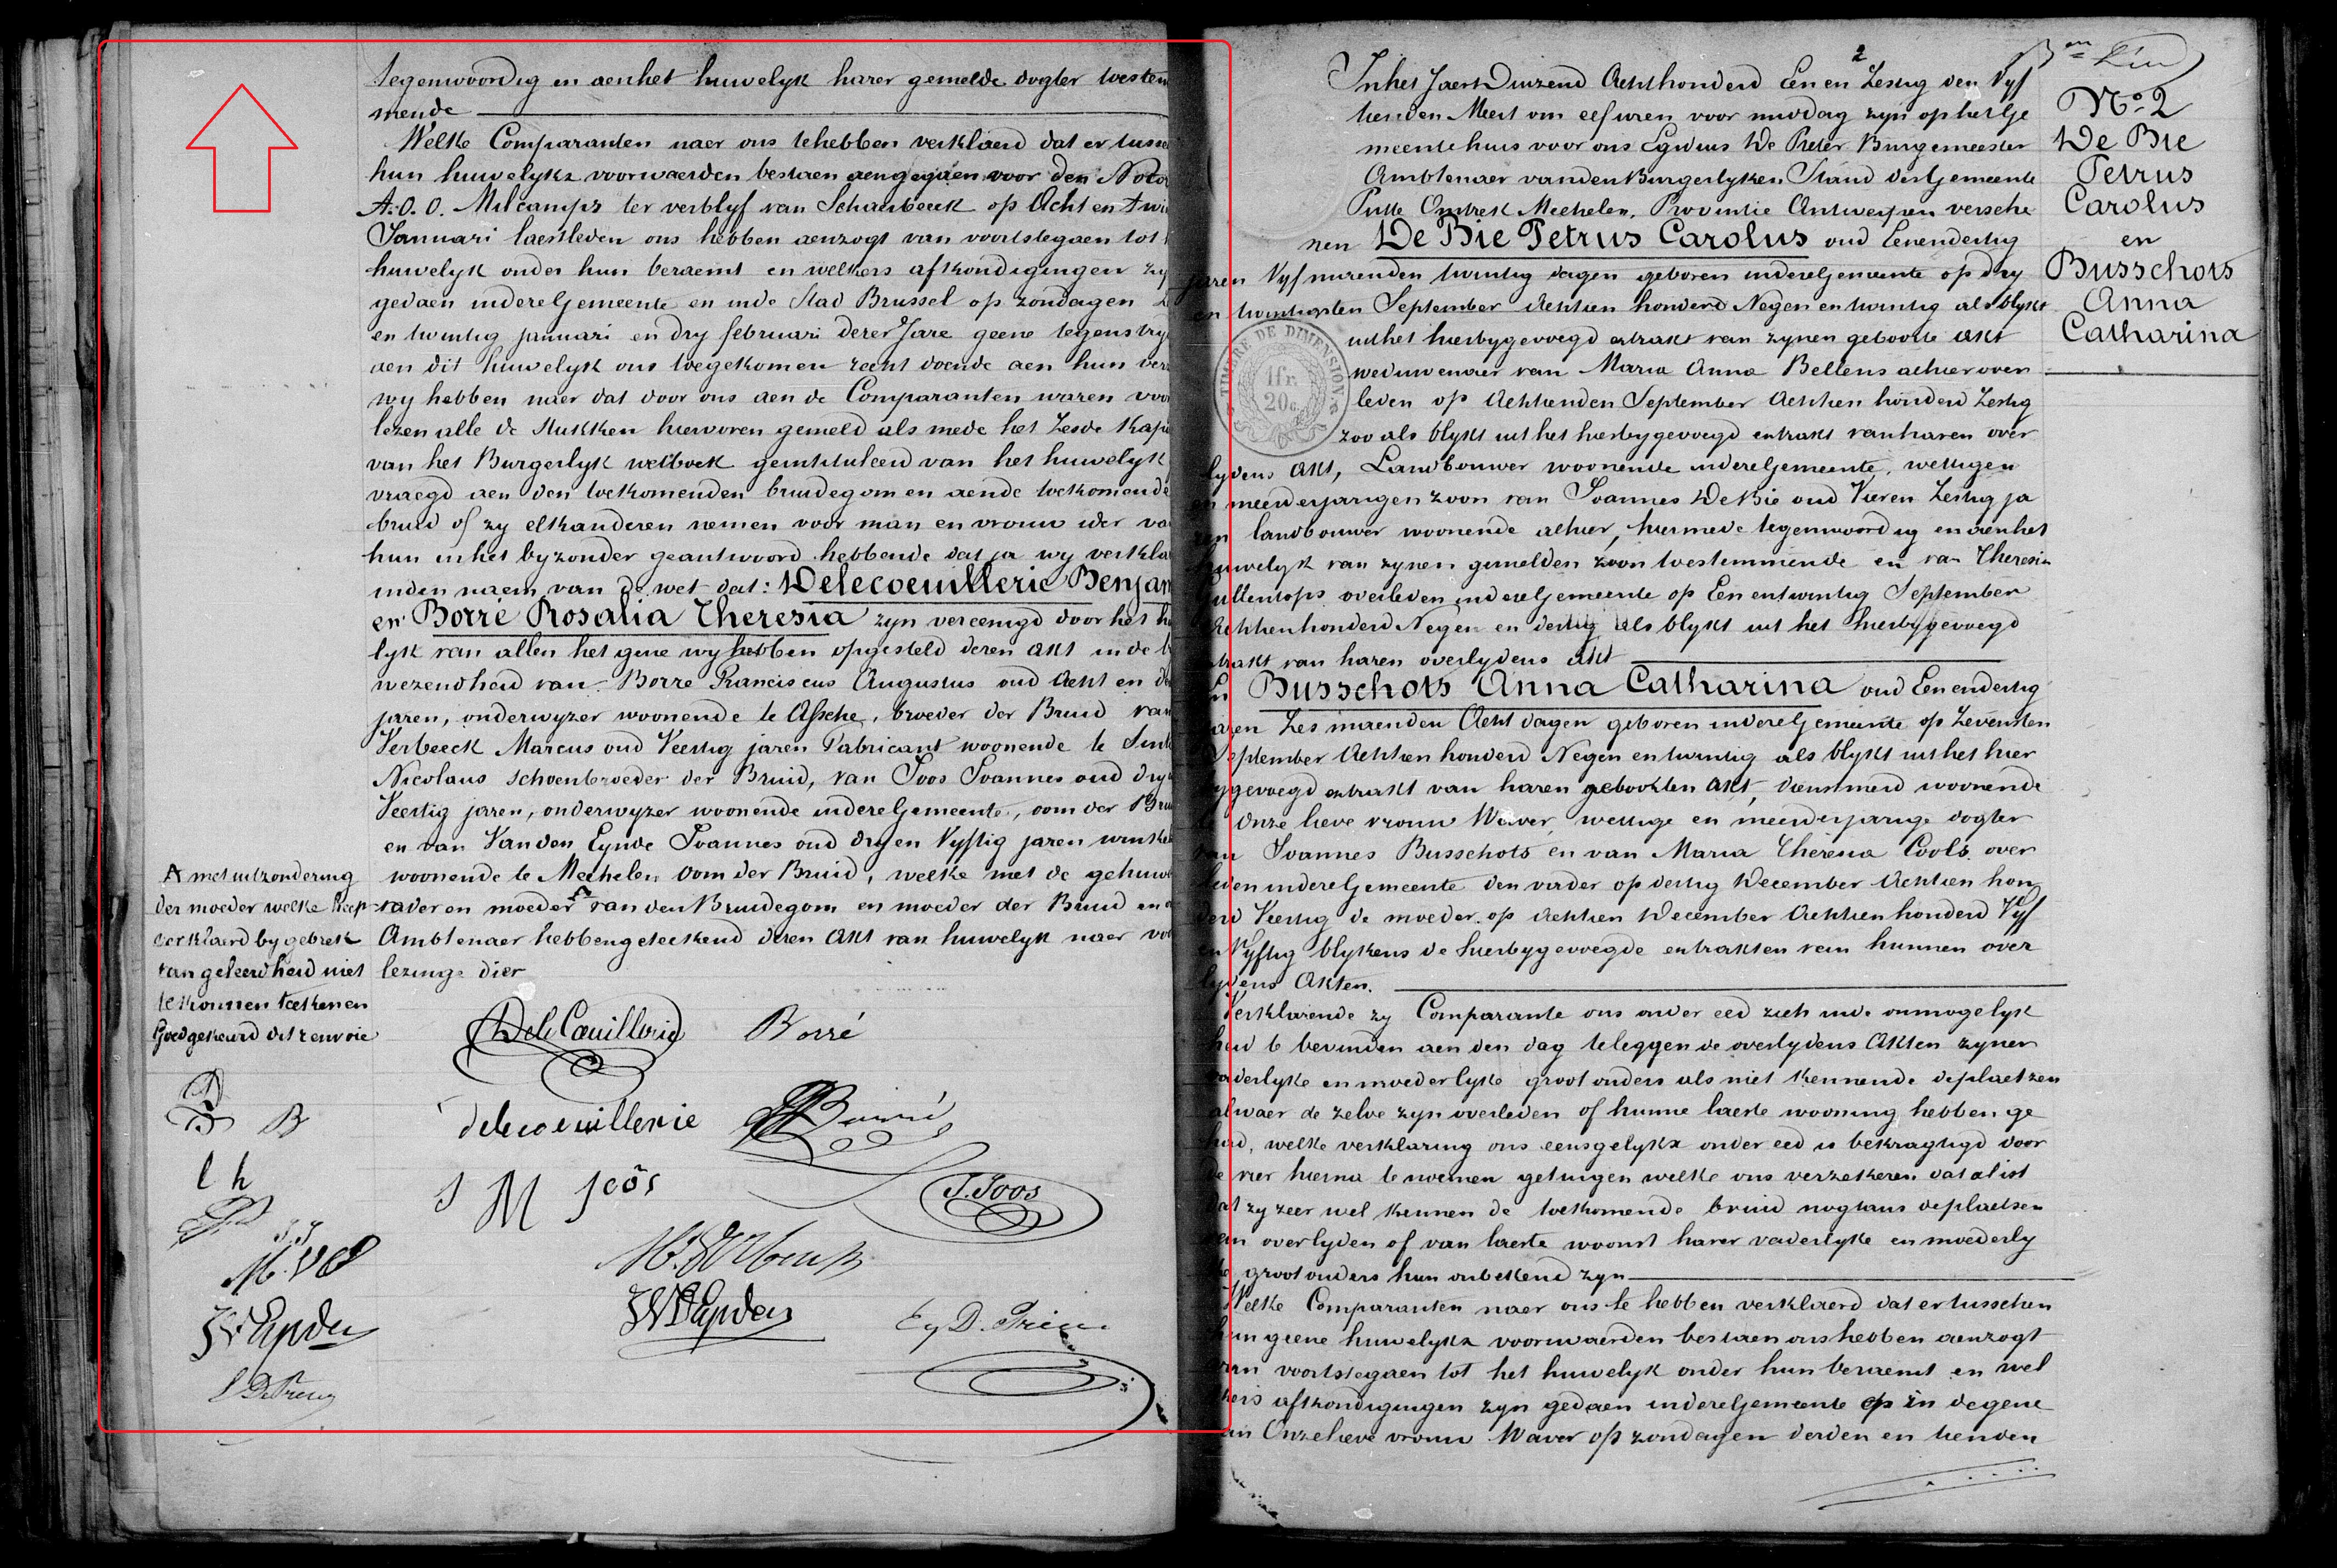 tegenwoordig en aenhet huwelyk harer gemelde dogter toestem
mende
Welke Comparanten naer ons tehebben verklaerd dat er tussc
hun huwelyks voorwaerden bestaen aengegaen voor den Nota
A. O. O. Milcamps ter verblyf van Schaerbeeck op Acht en twi
Januari laestleden ons hebben aenzogt van voortstegaen tot
huwelyk onder hun beraemt en welkers afkondigingen zy
gedaen indereGemeente en inde Stad Brussel op zondagen
en twintig januari en dry februari derer Jare geene tegenstry
aen dit huwelyk ons toegekomen recht doende aen hun ver
wy hebben naer dat door ons aen de Comparanten waren voor
lezen alle de stukken hiervoren gemeld als mede het Zesde Kap
van het Burgerlyk wetboek geintituleerd van het huwelyk
vraegd aen den toekomenden bruidegom en aende toekomende
bruid of zy elkanderen nemen voor man en vrouw ider va
hun inhet byzonder geantwoord hebbende dat ja wy verkla
inden naem van de wet dat: Delecoeuillerie Benjam
en Borré Rosalia Theresia zyn vereenigd door het h
lyk van allen het gene wy hebben opgesteld deren akt inde
wezendheid van Borre Franciscus Augustus oud Acht en de
jaren, onderwyzer woonende te Assche, broeder der Bruid van
Verbeeck Marcus oud Veertig jaren Fabricant woonende te Sint
Nicolaus schoenbroeder der Bruid, van Joos Joannes oud dry
Veertig jaren, onderwyzer woonende indereGemeente, oom der Bru
en van Vanden Eynde Joannes oud dry en Vyftig jaren, winke
woonende te Mechelen oom der Bruid, welke met de gehuw
vader en moeder van den Bruidegom en moeder der Bruid en
Ambtenaer hebben geteekend deren Akt van huwelyk naer vo
lezinge dier
A met uitzondering
der moeder welke heep
verklaerd by gebrek
van geleerdheid niet
te konnen teekenen
Goedgekeurd dit renvoie
DeleCœuillerie Borré
B
delecoeuillerie
l h
J M Joos
J. Joos
J.J
M. VB
JVDEynden
JVDEynden
Eg D. Preter
2
No 2
De Bie
Petrus
Carolus
en
Busschots
Anna
Catharina
Inhet Jaer Duizend Achthonderd Een en Zestig den Vyf
tienden Meert om elf uren voor middag zyn op het Ge
meentehuis voor ons Egidius De Preter Burgemeester
Ambtenaer vanden Burgerlyken Stand der Gemeente
Putte Omtrek Mechelen, Provintie Antwerpen versche
nen De Bie Petrus Carolus oud Eenendertig
jaren Vyf maenden twintig dagen geboren indereGemeente op dry
en twintigsten September Achtien honderd Negen en twintig als blykt
uit het hierbygevoegd extrakt van zynen geboorte akt
weduwenaer van Maria Anna Bellens alhier over
leden op Achtienden September Achtien honderd Zestig
zoo als blykt uit het hierbygevoegd extrakt van haren over
lydens akt, Landbouwer woonende indereGemeente, wettigen
en meerderjarigen zoon van Joannes De Bie oud Vieren Zestig ja
ren landbouwer woonende alhier, hiermede tegenwoordig en aenhet
huwelyk van zynen gemelden zoon toestemmende en van Theresia
overleden indereGemeente op Een entwintig September
Achtienhonderd Negen en dertig als blykt uit het hierbygevoegd
extrakt van haren overlydens akt
En Busschots Anna Catharina oud Eenendertig
jaren Zes maenden Acht dagen geboren indereGemeente op Zevensten
September Achtien honderd Negen entwintig als blykt uit het hier
bygevoegd extrakt van haren geboorten akt, dienstmeid woonende
te Onze lieve vrouw Waver, wettige en meerderjarige dogter
van Joannes Busschots en van Maria Theresia Cools over
leden indereGemeente den vader op dertig December Achtien hon
derd Veertig de moeder op Achtien December Achtien honderd Vyf
en Vyftig blykens de hierbygevoegde extrakten van hunnen over
lydens Akten.
Verklarende zy Comparante ons onder eed zich inde onmogelyk
heid te bevinden aen den dag teleggen de overlydens Akten zyner
vaderlyke en moederlyke grootouders als niet kennende deplaetzen
alwaer de zelve zyn overleden of hunne laeste wooning hebben ge
had, welke verklaring ons eensgelyks onder eed is bekragtigd door
de vier hierna te noemen getuigen welke ons verzekeren dat alist
dat zy zeer wel kennen de toekomende bruid nogtans deplaetsen
van overlyden of van laeste woonst harer vaderlyke en moederly
ke grootouders hun onbekend zyn
Welke Comparanten naer ons te hebben verklaerd dat ertusschen
hun geene huwelyks voorwaerden bestaen ons hebben aenzogt
van voortstegaen tot het huwelyk onder hun beraemt en wel
kers afkondigingen zyn gedaen indereGemeente op in degene
van Onzelieve vrouw Waver op zondagen derden en tienden
TIMBRE DE DIMENSION
1fr.
20c.